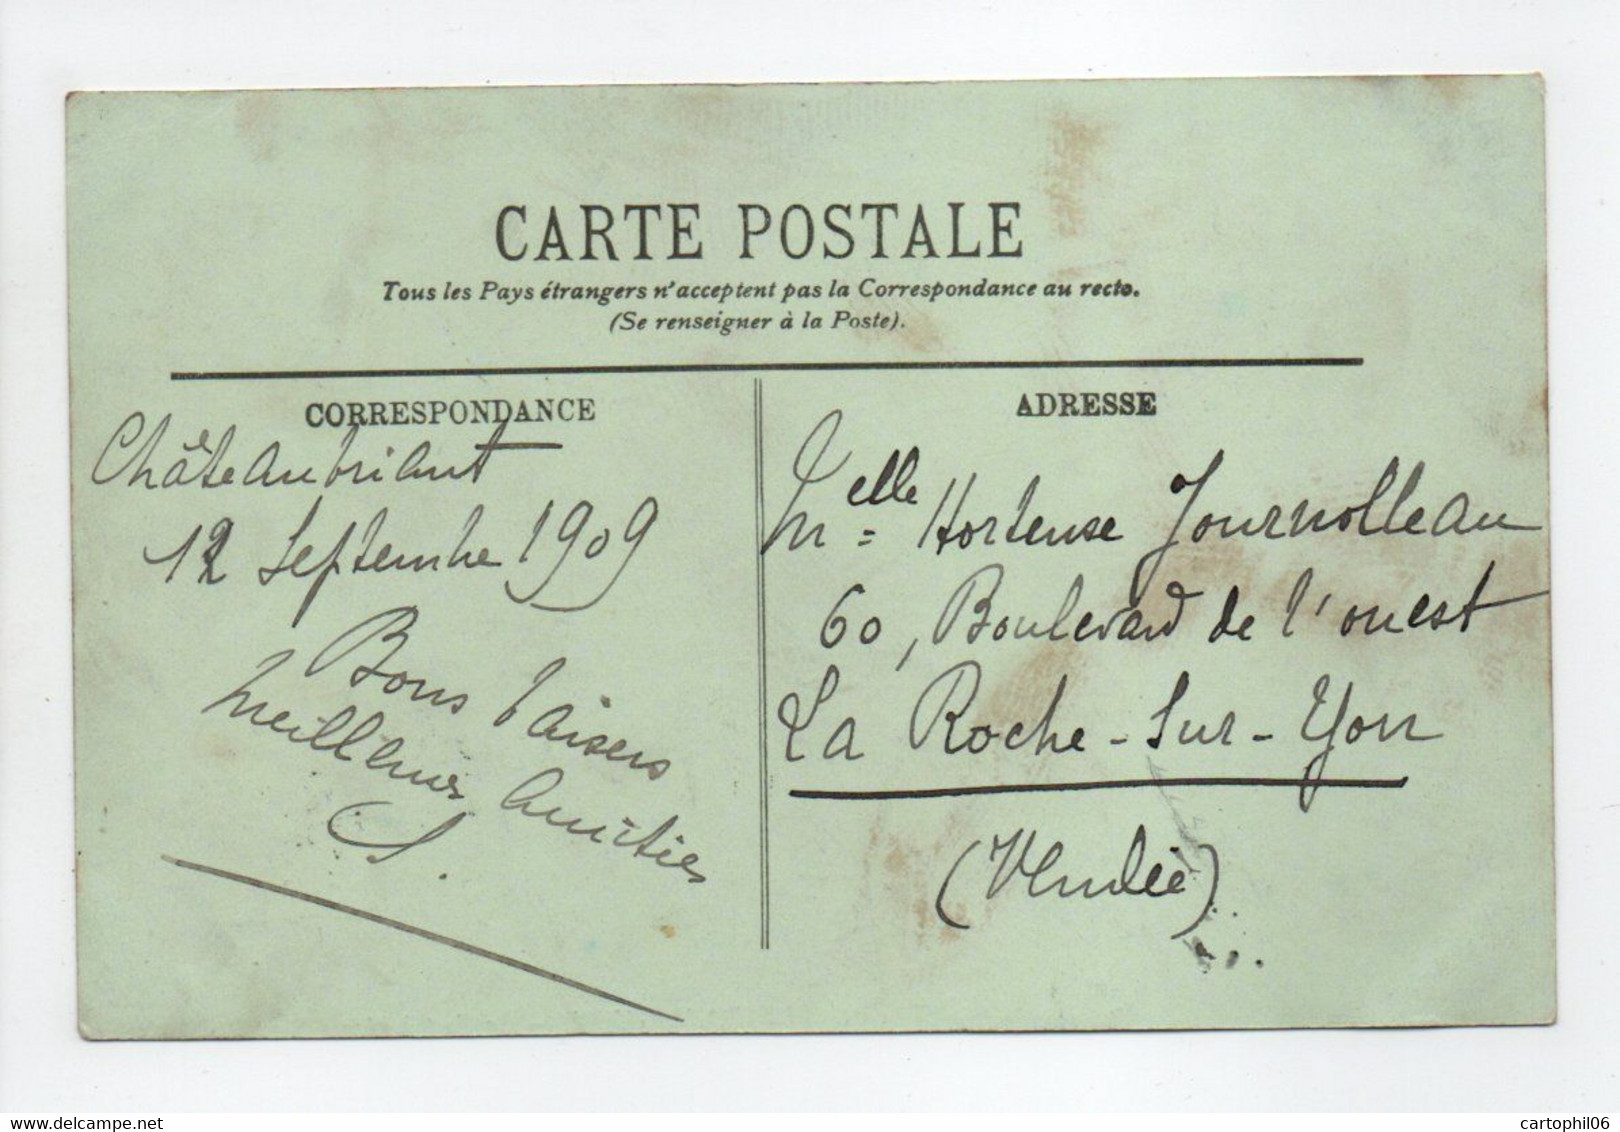 CARTE POSTALE
Tous les Pays étrangers n'acceptent pas la Correspondance au recto.
(Se renseigner à la Poste).
CORRESPONDANCE
Châteaubriant
12 Septembre 1909
Bons baisers
meilleures amitiés
S.
ADRESSE
Melle Hortense Journolleau
60, Boulevard de l'ouest
La Roche-Sur-Yon
(Vendée)
cartophil06